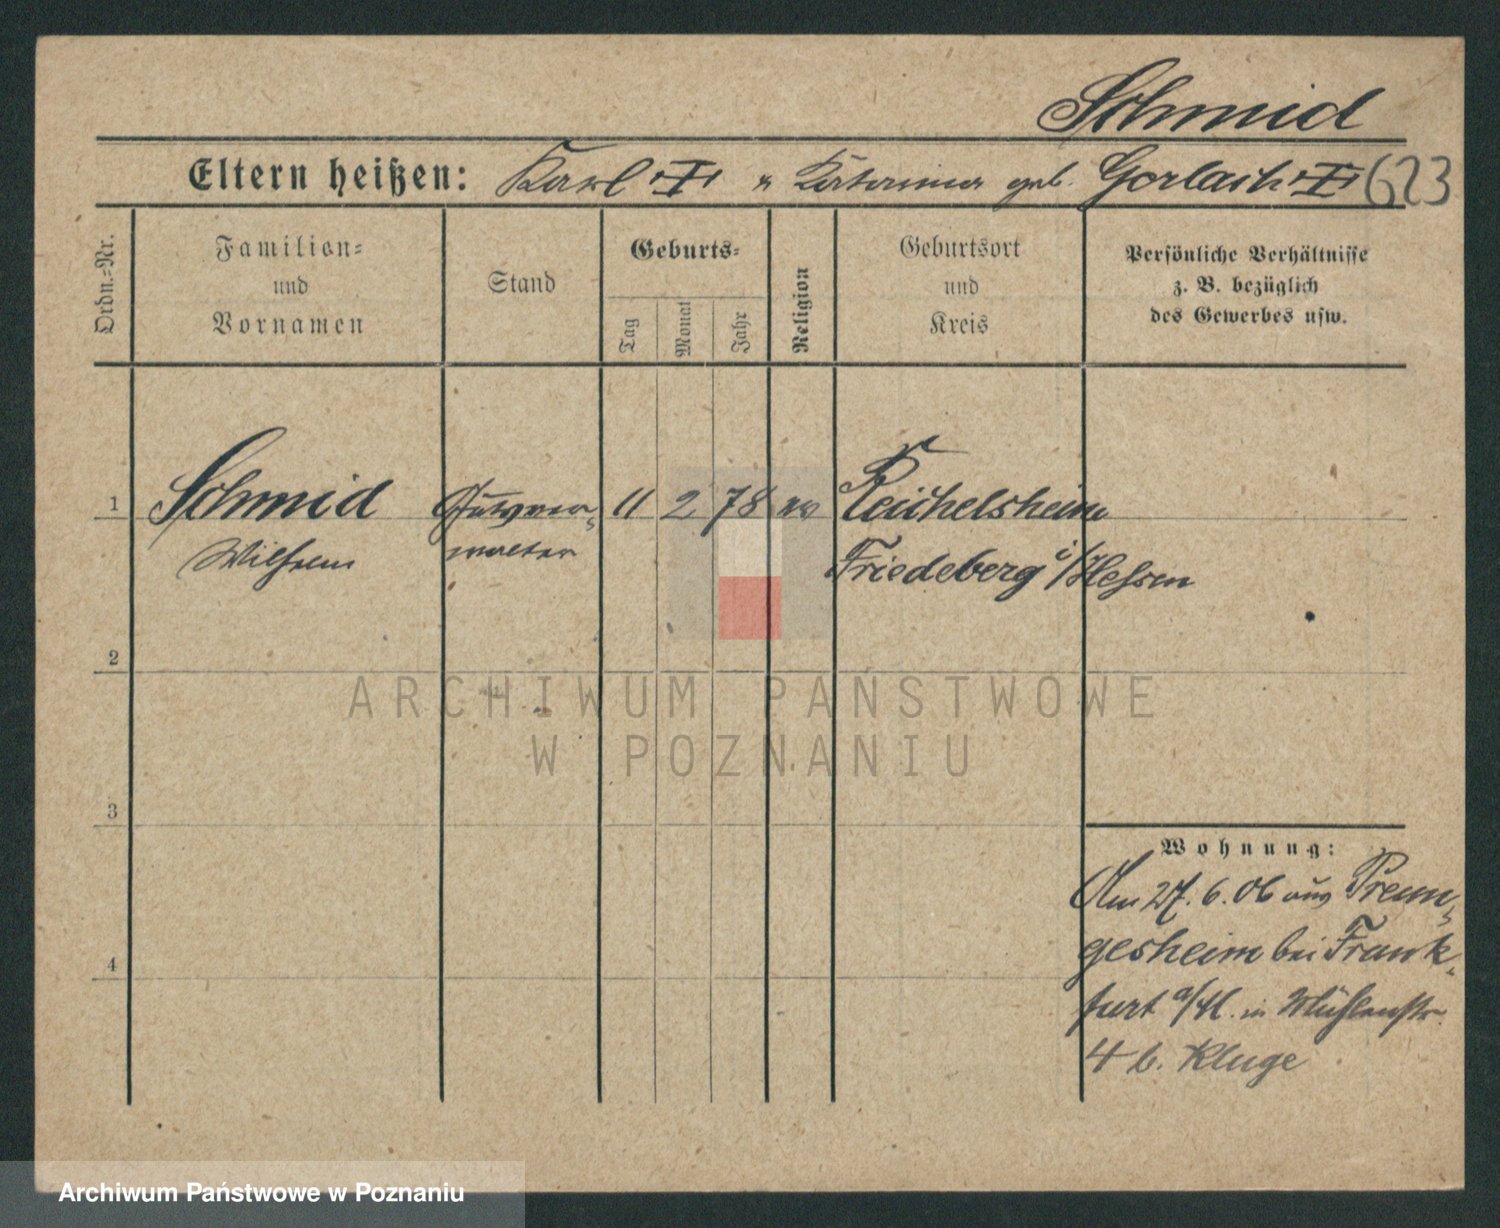 Schmid
Eltern heißen: Karl † u Katarina geb. Gorlach † 623
Ordn.-Nr.
Familien-
und
Vornamen
Stand
Geburts-
Tag
Monat
Jahr
Religion
Geburtsort
und
Kreis
Persönliche Verhältnisse
z. B. bezüglich
des Gewerbes usw.
1 Schmid Gutsver- 11 2 78 ev Reichelsheim
Wilhelm walter Friedeberg i/Hessen
2
3
4
Wohnung:
Am 27. 6. 06 aus Preun-
gesheim bei Frank-
furt a/M. in Mühlenstr.
4 b. Kluge
ARCHIWUM PAŃSTWOWE
W POZNANIU
Archiwum Państwowe w Poznaniu